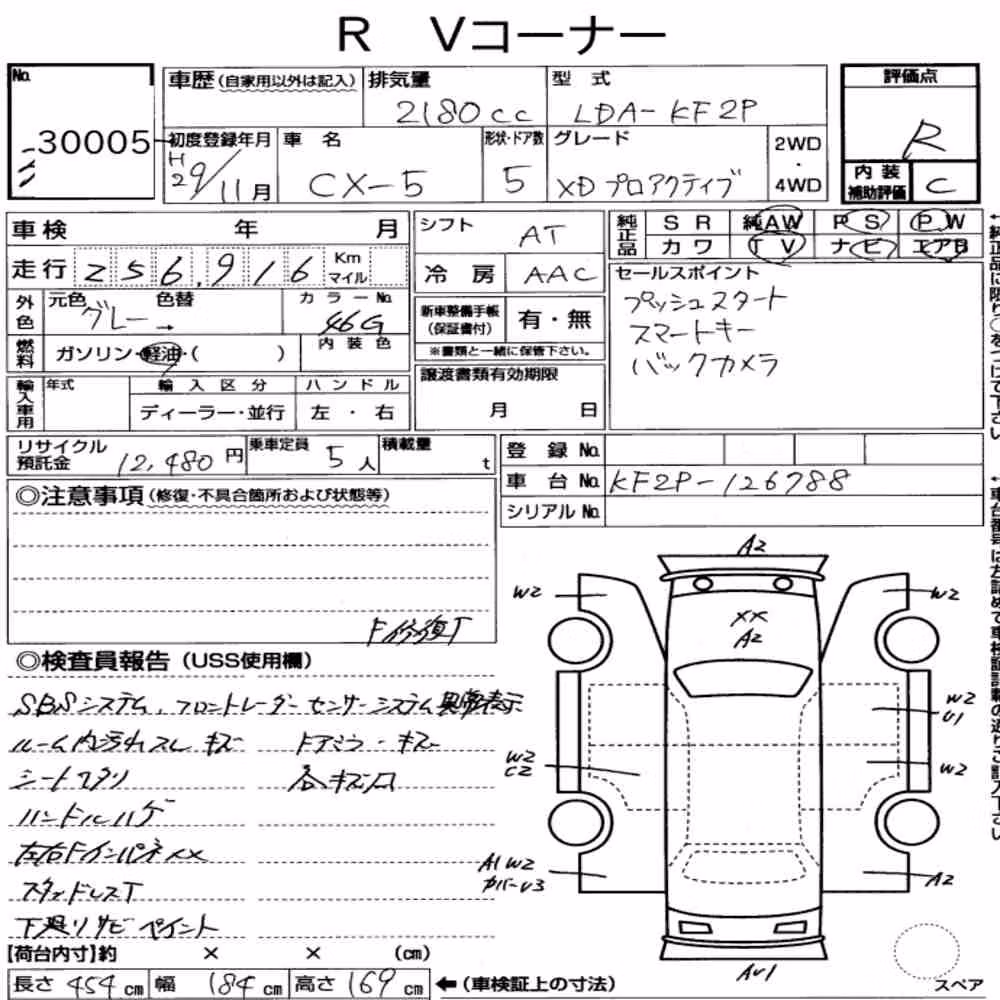 R Vコーナー
No.
30005
車歴(自家用以外は記入)
排気量
2180cc
型式
LDA-KF2P
評価点
R
内装補助評価
C
初度登録年月
H29/11月
車名
CX-5
形状・ドア数
5
グレード
XDプロアクティブ
2WD・4WD
車検 年 月
走行 256,916 Km マイル
外色
元色 グレー
色替 →
カラーNo.
46G
燃料
ガソリン・軽油・( )
内装色
輸入車用
年式
輸入区分
ディーラー・並行
ハンドル
左・右
シフト
AT
冷房
AAC
新車整備手帳(保証書付)
有・無
※書類と一緒に保管下さい。
譲渡書類有効期限
月 日
純正品
SR 純AW PS PW
カワ TV ナビ エアB
セールスポイント
プッシュスタート
スマートキー
バックカメラ
リサイクル預託金
12,480円
乗車定員
5人
積載量
t
登録No.
車台No.
KF2P-126788
シリアルNo.
◎注意事項(修復・不具合箇所および状態等)
F修復T
◎検査員報告(USS使用欄)
SBSシステム、フロントレーダーセンサーシステム異常表示
ルーム内汚れスレキズ ドアミラーキズ
シートヘタリ 各キズ凹
ハンドルハゲ
左右FインパネXX
スタッドレスT
下廻りサビ ペイント
【荷台内寸】約 × × (cm)
長さ 454cm 幅 184cm 高さ 169cm
←(車検証上の寸法)
A2
W2
W2
XX
A2
W2
U1
W2
C2
W2
A1 W2
カバーU3
A2
AU1
スペア